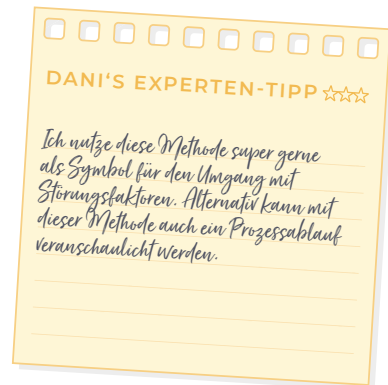 DANI'S EXPERTEN-TIPP
Ich nutze diese Methode super gerne
als Symbol für den Umgang mit
Störungsfaktoren. Alternativ kann mit
dieser Methode auch ein Prozessablauf
veranschaulicht werden.